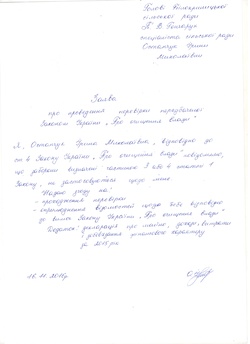 Голові
міської ради
спеціаліста міської ради
Остапчук Ірини
Миколаївни
Заява
про проведення перевірки, передбаченої
Законом України „Про очищення влади"
Я, Остапчук Ірина Миколаївна, відповідно до
ст 4 Закону України „Про очищення влади" повідомляю,
що заборони, визначені частиною 3 або 4 статті 1
Закону, не застосовуються щодо мене.
Надаю згоду на:
- проходження перевірки
- оприлюднення відомостей щодо себе відповідно
до вимог Закону України „Про очищення влади"
Додатки: декларація про майно, доходи, витрати
і зобов'язання фінансового характеру
за 2015 рік